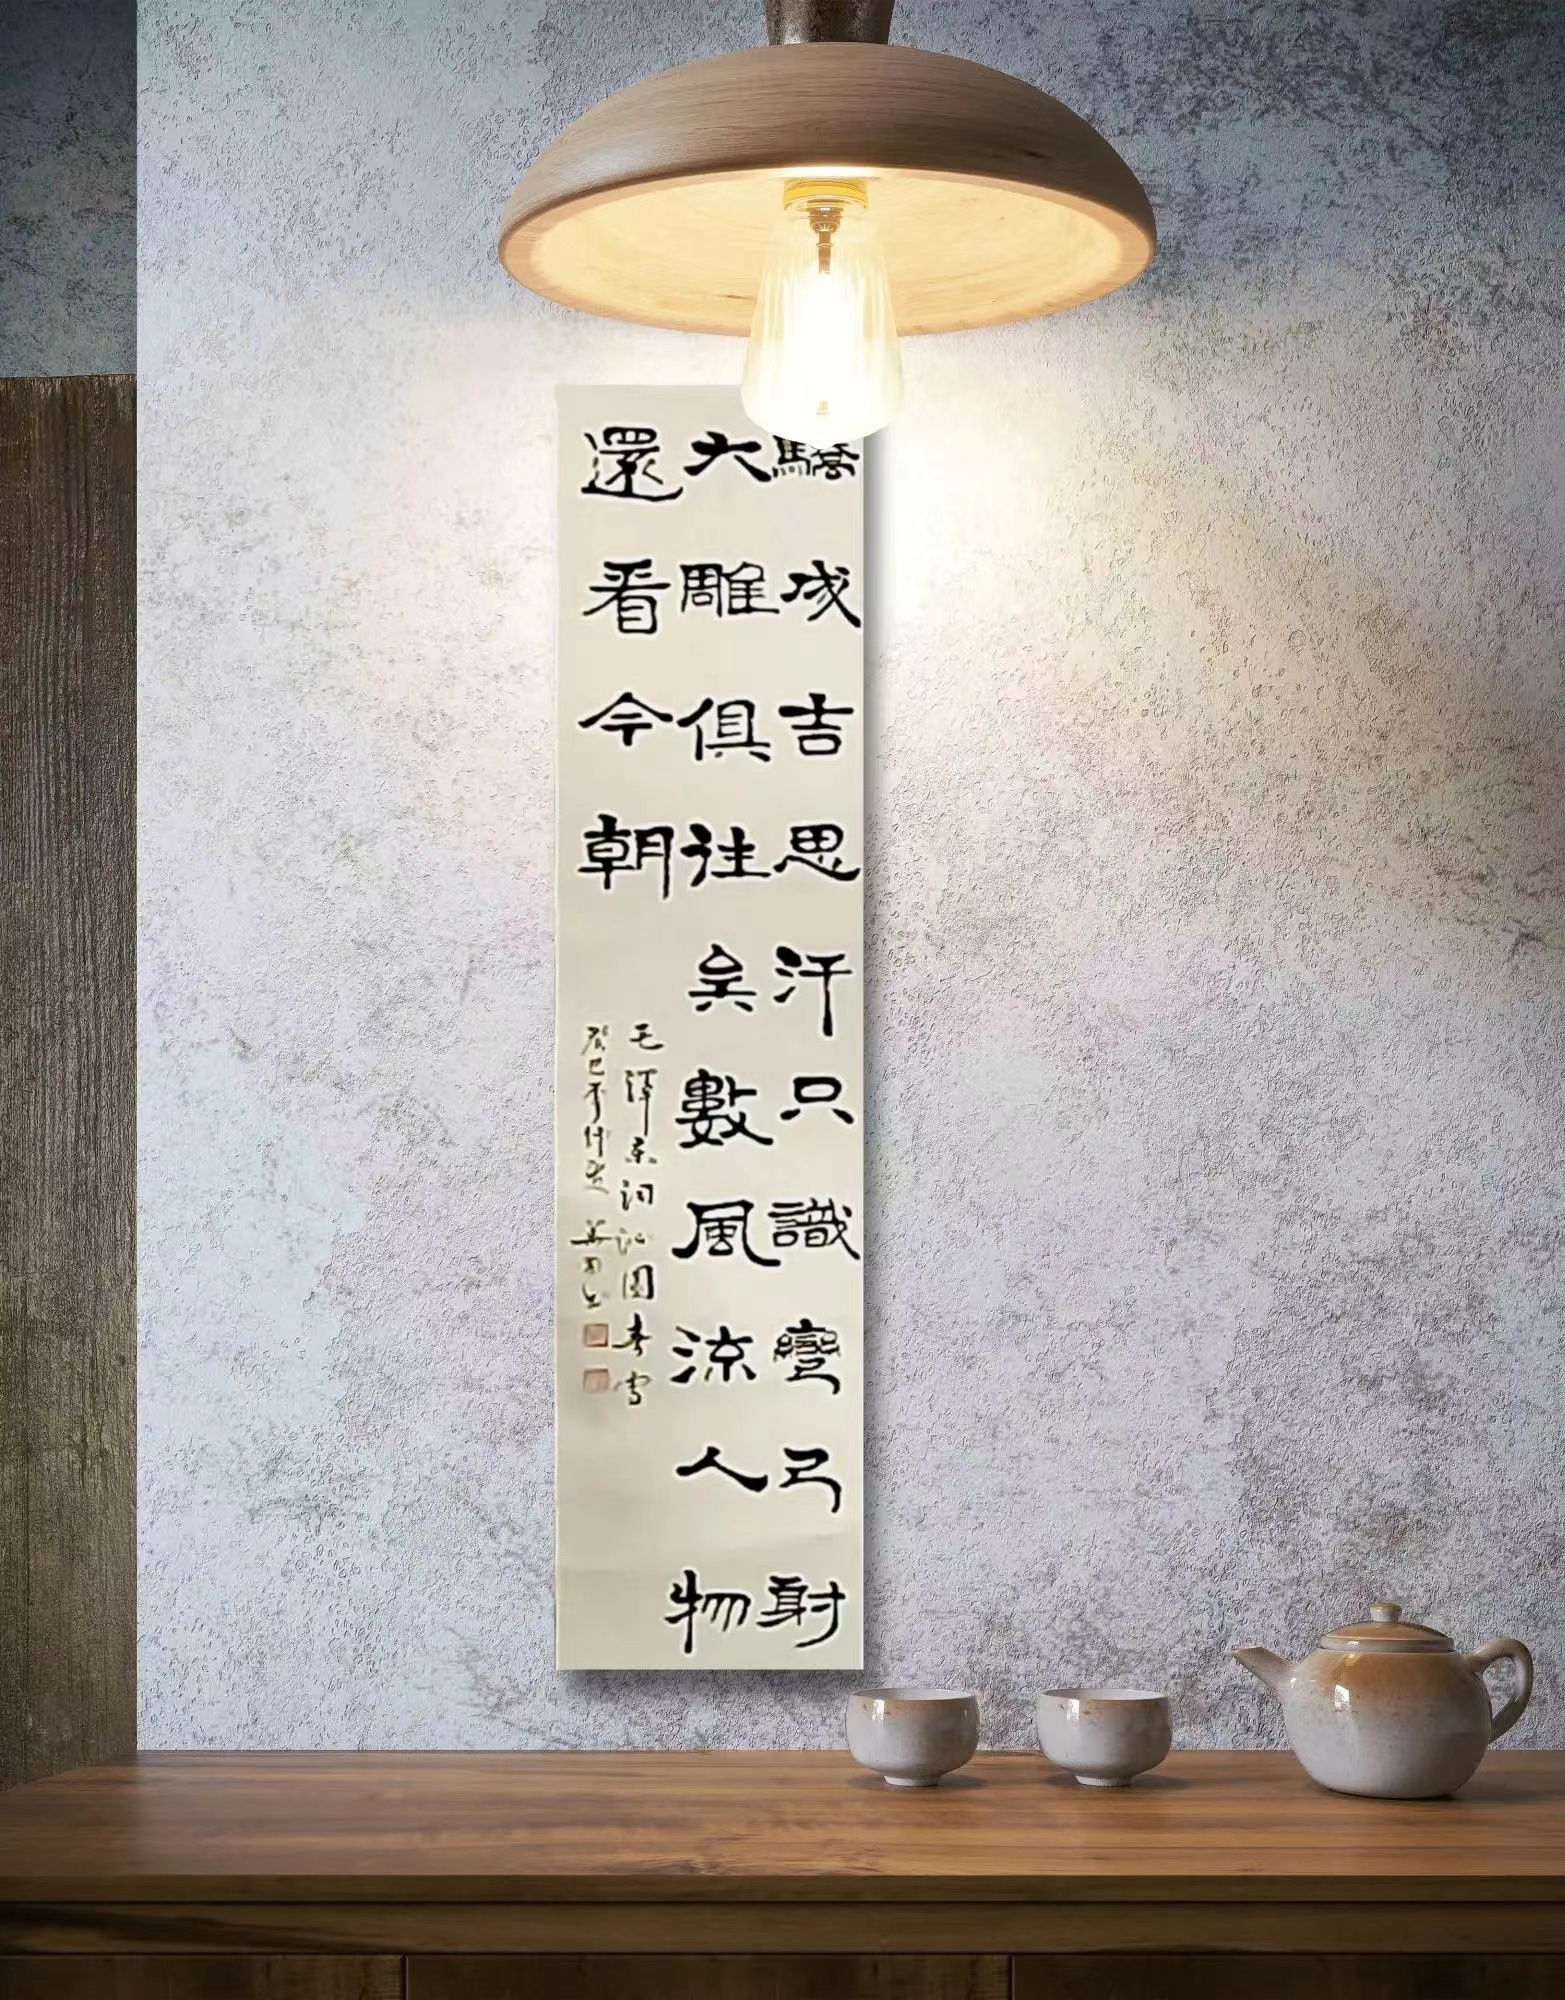 驕成吉思汗只識彎弓射
大雕俱往矣數風流人物
還看今朝
毛澤東詞沁園春雪
癸巳